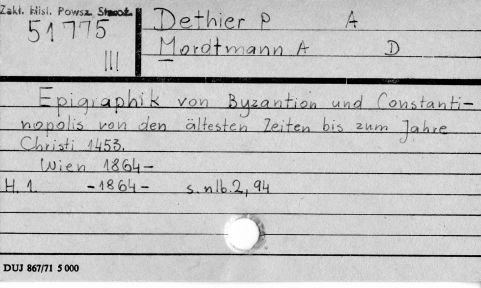 Zakł. Hist. Powsz. Staroż.
51775
III
Dethier P A
Mordtmann A D
Epigraphik von Byzantion und Constanti-
nopolis von den ältesten Zeiten bis zum Jahre
Christi 1453.
Wien 1864-
H. 1. -1864- s. nlb. 2, 94
DUJ 867/71 5 000